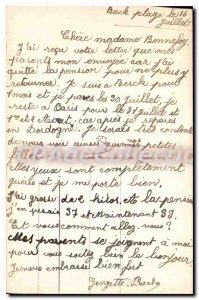 Berck plage le 16
juillet
Chère madame Bonnafoy
J'ai reçu votre lettre que mes
parents mon envoyée car j'ai
quitté la pension pour ne plus y
retourner. Je suis a Berck pour
mois et je pars le 30 juillet je
reste a Paris pour le 31 juillet et
1er et Aout, car après je repars
en Dordogne. Je serais très contente
de vous voir ainsi que mes petites
Mes yeux sont complètement
guéris et je me porte bien.
J'ai grossi de kilos. A la pension
j'en pesais 37 et maintenant 39.
Et vous comment allez-vous?
Mes parents se joignent à moi
pour vous souhaiter bien le bonjour
Je vous embrasse bien fort
Georgette